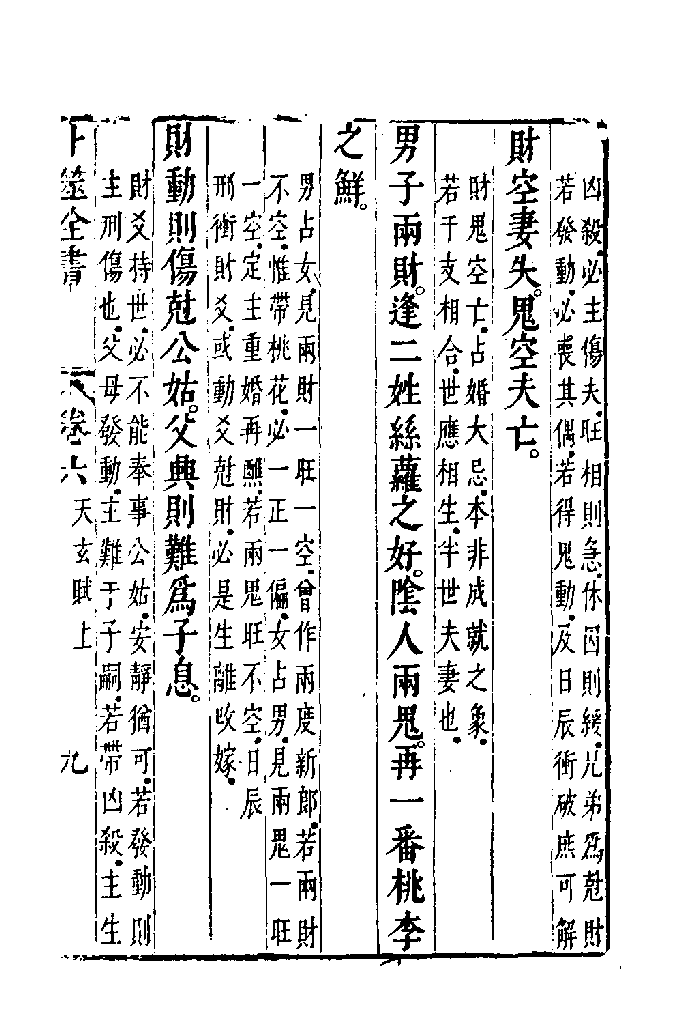 凶殺必主傷夫旺相則急休囚則緩兄弟為尅財
若發動必喪其偶若得鬼動及日辰衝破庶可解
財空妻失鬼空夫亡
財鬼空亡占婚大忌本非成就之象
若干支相合世應相生半世夫妻也
男子兩財逢二姓絲蘿之好陰人兩鬼再一番桃李
之鮮
男占女見兩財一旺一空曾作兩度新郎若兩財
不空惟帶桃花必一正一偏女占男見兩鬼一旺
一空定主重婚再醮若兩鬼旺不空日辰
刑衝財爻或動爻尅財必是生離改嫁
財動則傷尅公姑父興則難為子息
財爻持世必不能奉事公姑安靜猶可若發動則
主刑傷也父母發動主難于子嗣若帶凶殺主生
卜筮全書 卷六 天玄賦上 九